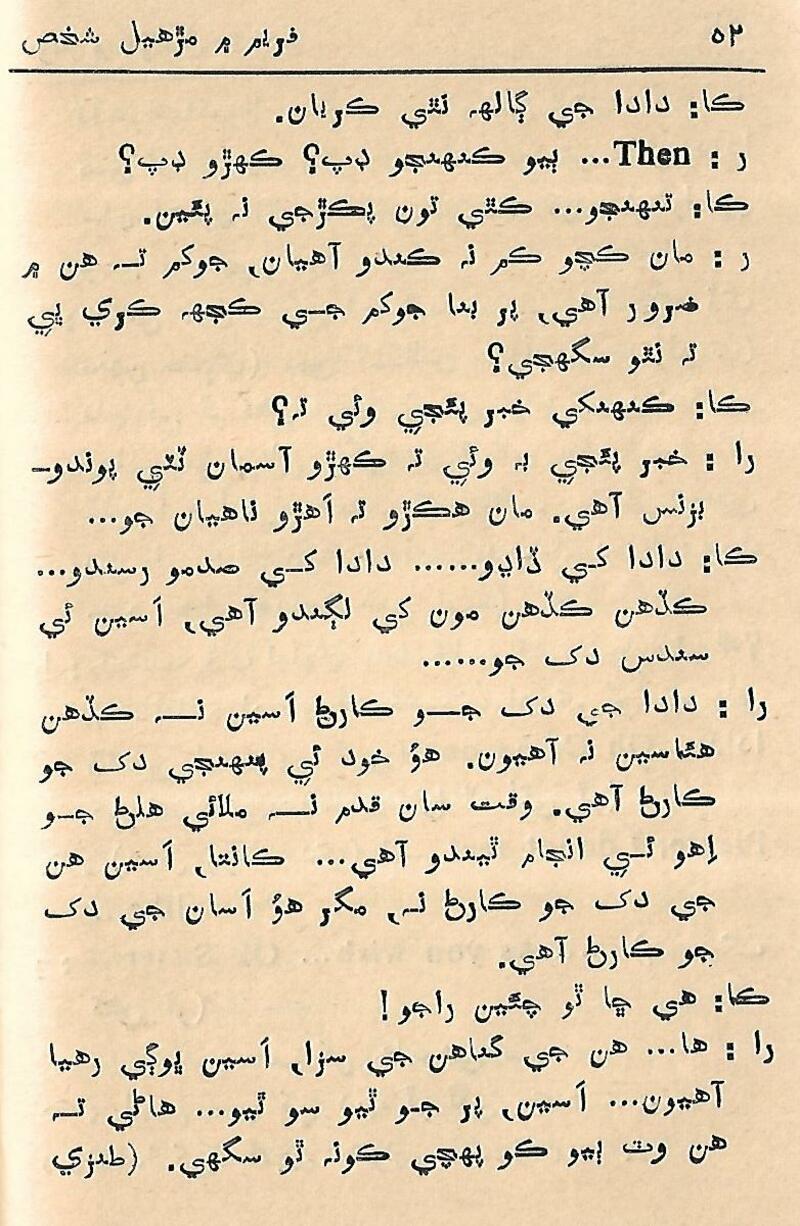 ۵۲ فريم ۾ مڙهيل شخص
ڪا: دادا جي ڳالهہ نٿي ڪريان.
ر : Then... ٻيو ڪنهنجو ڊپ؟ ڪهڙو ڊپ؟
ڪا: تنهنجو... ڪٿي تون پڪڙجي نہ پئين.
ر : مان ڪچو ڪم نہ ڪندو آهيان, جوکم تہ هن ۾
ضرور آهي, پر بنا جوکم جي ڪجهہ ڪري ٻي
تہ نٿو سگهجي؟
ڪا: ڪنهنکي خبر پئجي وئي تہ؟
را : خبر پئجي بہ وئي تہ ڪهڙو آسمان ٽٽي پوندو-
بزنس آهي. مان هڪڙو تہ اَهڙو ناهيان جو...
ڪا: دادا کي ڏاڍو...... دادا کي صدمو رسندو...
ڪڏهن ڪڏهن مون کي لڳندو آهي, اَسين ئي
سندس دک جو......
را : دادا جي دک جو ڪارڻ اَسين نہ ڪڏهن
هئاسين نہ آهيون. هوُ خود ئي پنهنجي دک جو
ڪارڻ آهي. وقت سان قدم نہ ملائي هلڻ جو
اِهو ئي انجام ٿيندو آهي... ڪانتا, اَسين هن
جي دک جو ڪارڻ نہ, مگر هوُ اَسان جي دک
جو ڪارڻ آهي.
ڪا: هي ڇا ٿو چئين راجو!
را : ها... هن جي گناهن جي سزا, اَسين ڀوڳي رهيا
آهيون... اَسين, پر جو ٿيو سو ٿيو... هاڻي تہ
هن وٽ ٻيو ڪو پهچي ڪونہ ٿو سگهي. (طنزي